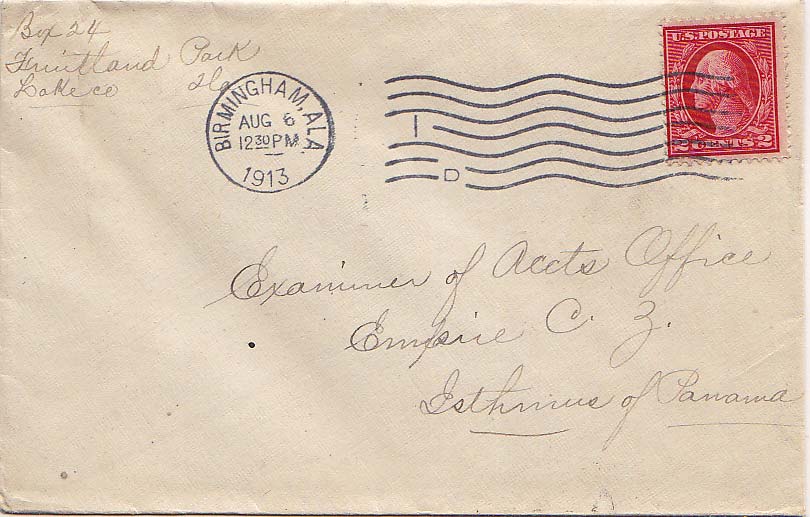 Box 24
Fruitland Park
Lake co Fla
BIRMINGHAM, ALA
AUG 6
12 30 PM
1913
I
D
U.S. POSTAGE
2 CENTS 2
Examiner of Accts Office
Empire C. Z.
Isthmus of Panama